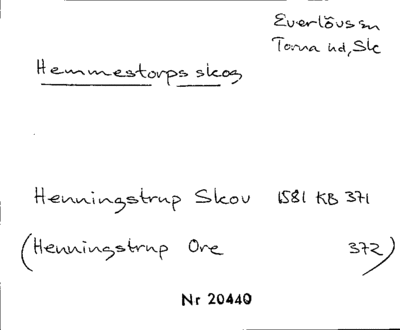 Everlövs sn
Torna hd, Sk
Hemmestorps skog
Henningstrup Skov 1581 KB 371
(Henningstrup Ore 372)
Nr 20440